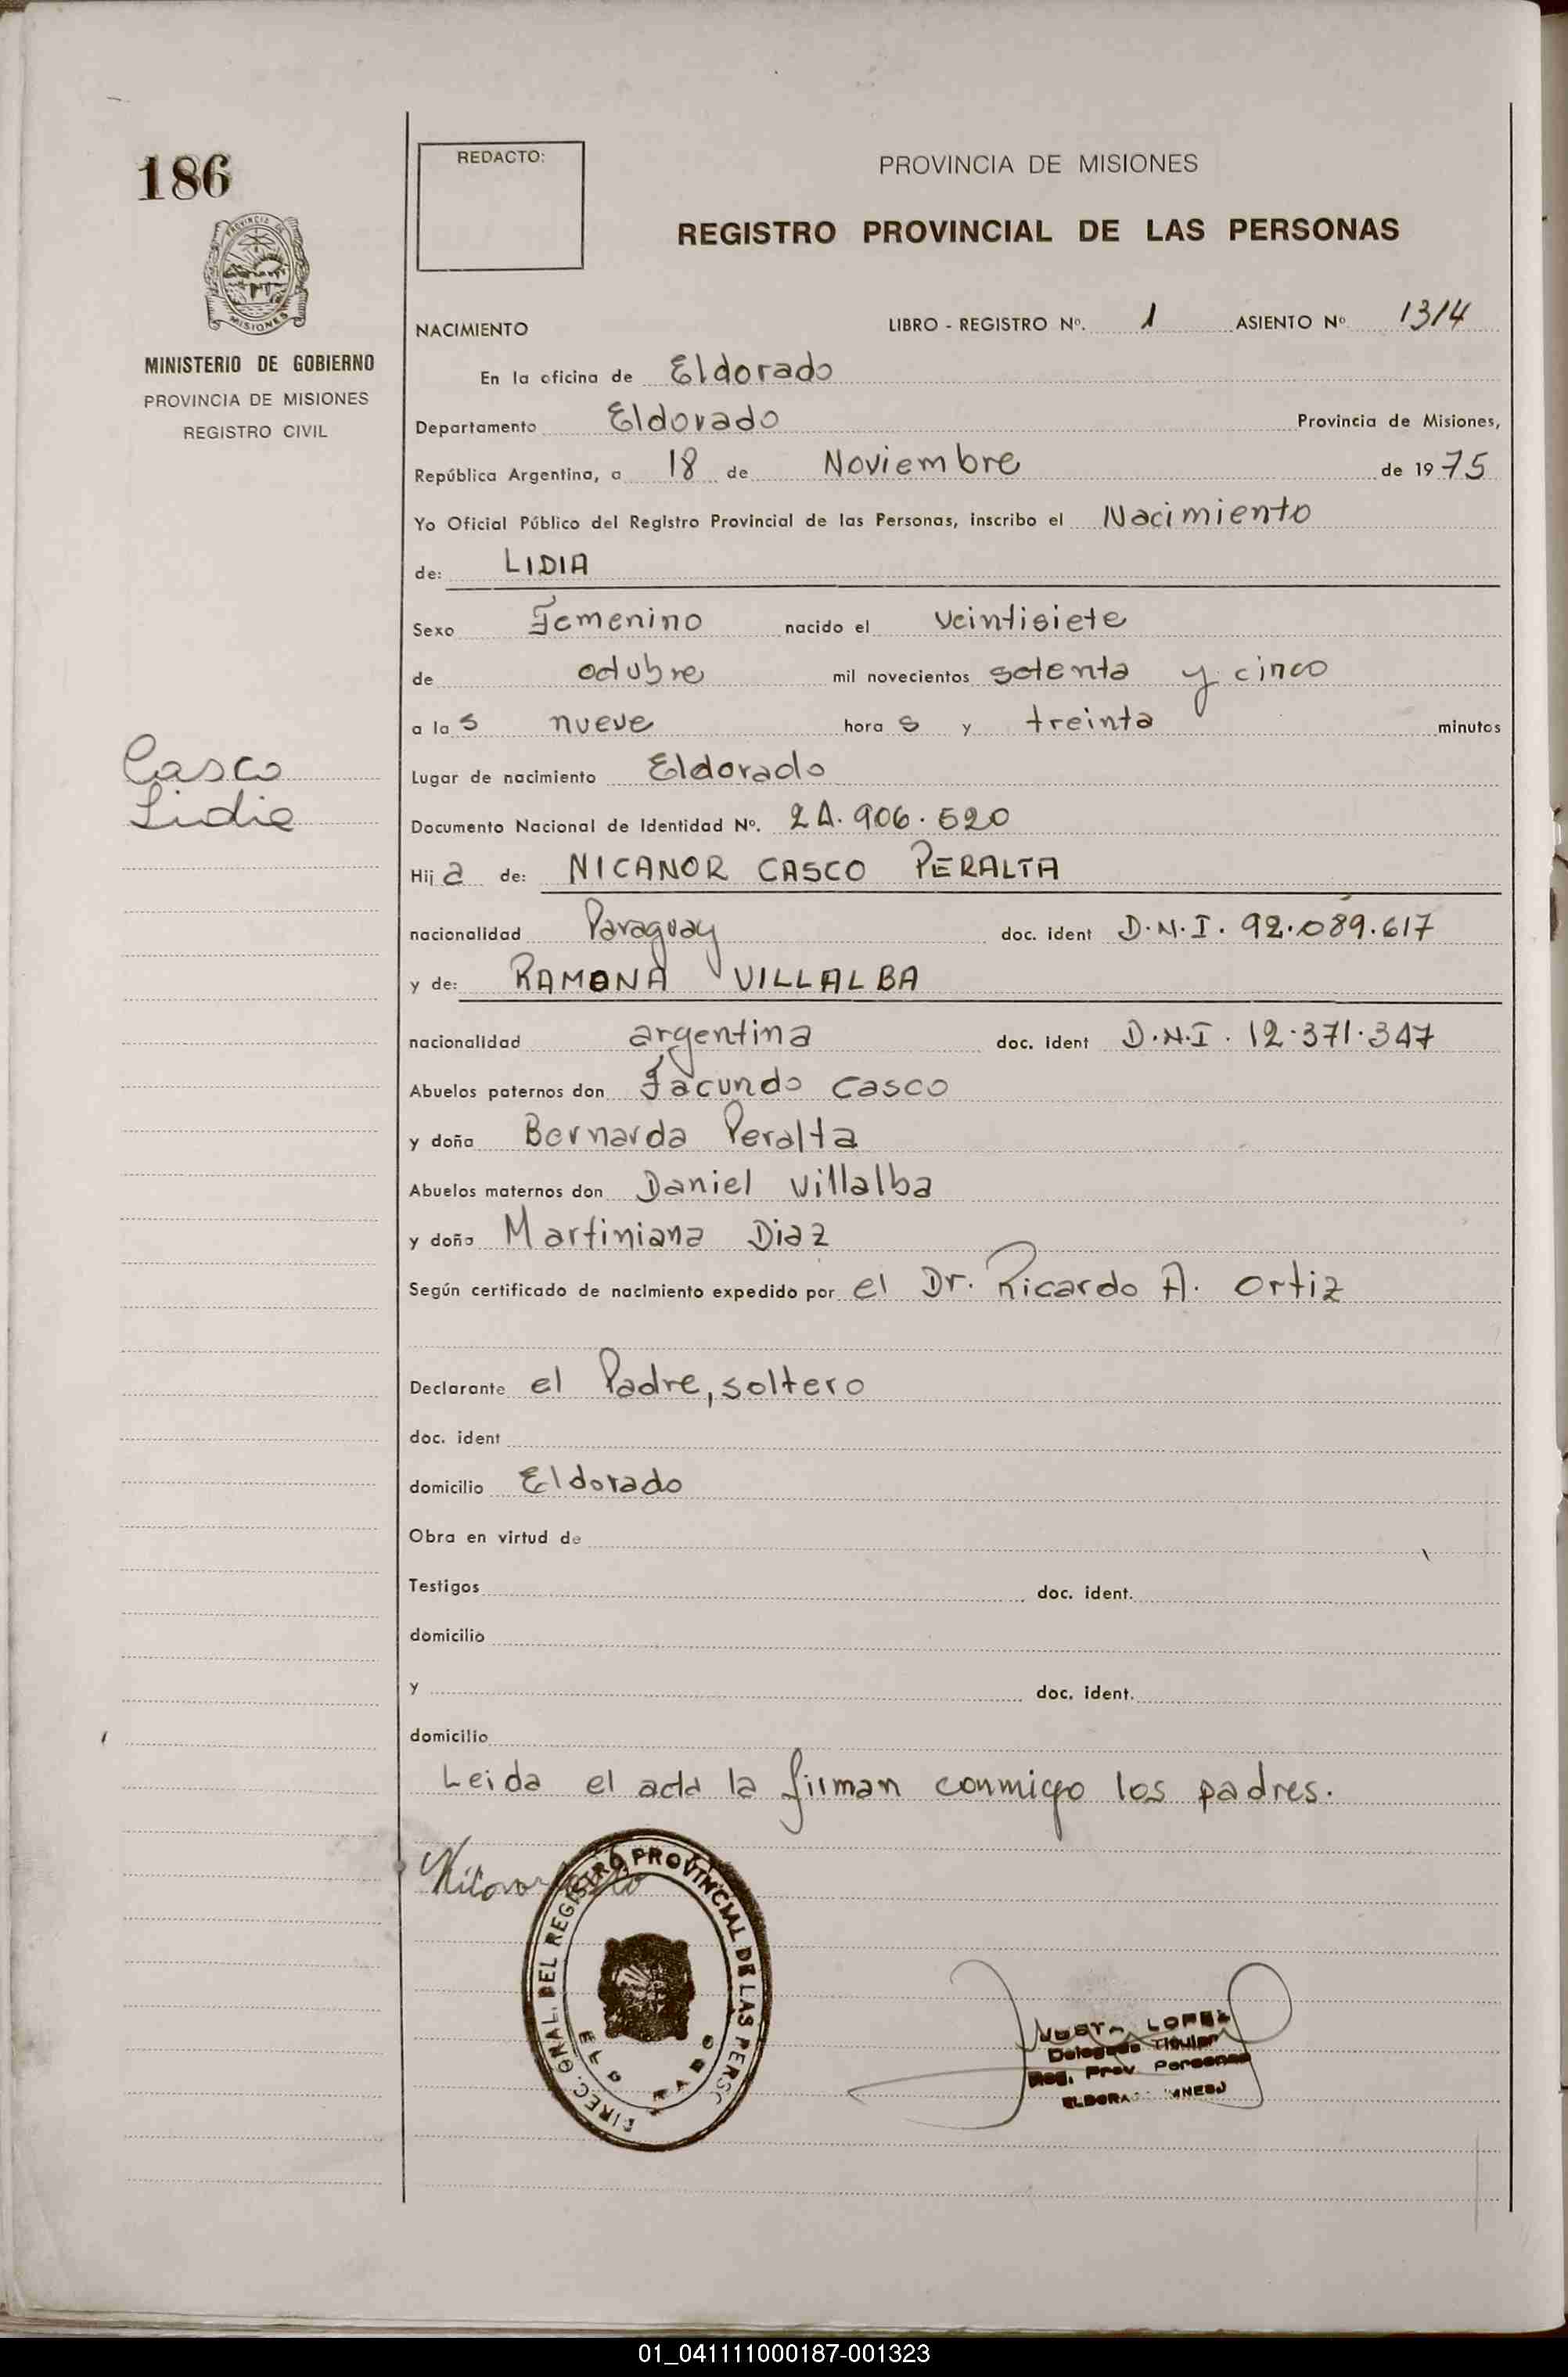 186
REDACTO:
PROVINCIA DE MISIONES
REGISTRO PROVINCIAL DE LAS PERSONAS
MINISTERIO DE GOBIERNO
PROVINCIA DE MISIONES
REGISTRO CIVIL
NACIMIENTO LIBRO - REGISTRO Nº. 1 ASIENTO Nº 1314
En la oficina de Eldorado
Departamento Eldorado Provincia de Misiones,
República Argentina, a 18 de Noviembre de 1975
Yo Oficial Público del Registro Provincial de las Personas, inscribo el Nacimiento
de: LIDIA
Sexo Femenino nacido el veintisiete
de octubre mil novecientos setenta y cinco
a las nueve horas y treinta minutos
Casco
Lidia
Lugar de nacimiento Eldorado
Documento Nacional de Identidad Nº. 24.906.520
Hija de: NICANOR CASCO PERALTA
nacionalidad Paraguay doc. ident D.N.I. 92.089.617
y de: RAMONA VILLALBA
nacionalidad argentina doc. ident D.N.I. 12.371.347
Abuelos paternos don Facundo Casco
y doña Bernarda Peralta
Abuelos maternos don Daniel Villalba
y doña Martiniana Diaz
Según certificado de nacimiento expedido por el Dr. Ricardo A. Ortiz
Declarante el Padre, soltero
doc. ident
domicilio Eldorado
Obra en virtud de
Testigos doc. ident.
domicilio
y doc. ident.
domicilio
Leida el acta la firman conmigo los padres.
DIREC. GRAL. DEL REGISTRO PROVINCIAL DE LAS PERSO
LOPEZ
Delegado Titular
Reg. Prov. Personas
01_041111000187-001323